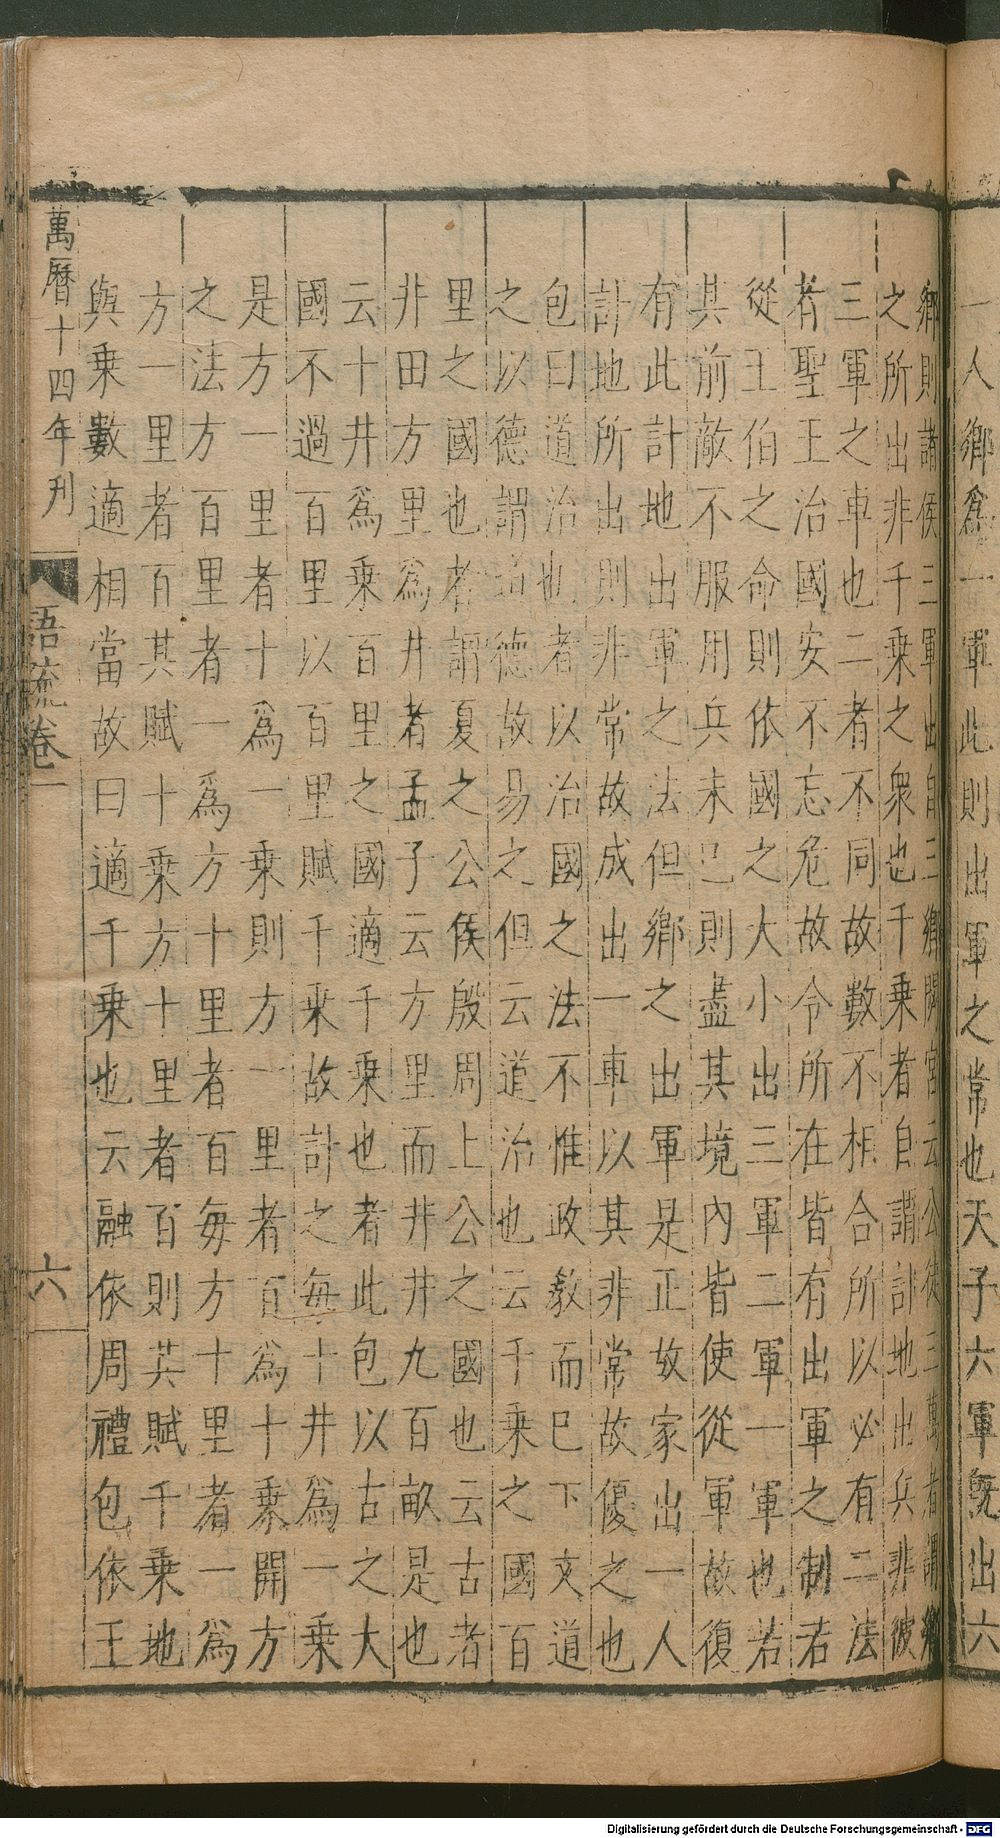 一人鄉爲一軍此則出軍之常也天子六軍旣出六
鄉則諸侯三軍出自三鄉閟宮云公徒三萬者謂鄉
之所出非千乗之衆也千乗者自謂計地出兵非彼
三軍之車也二者不同故數不相合所以必有二法
者聖王治國安不忘危故令所在皆有出軍之制若
從王伯之命則依國之大小出三軍二軍一軍也若
其前敵不服用兵未已則盡其境內皆使從軍故復
有此計地出軍之法但鄉之出軍是正故家出一人
計地所出則非常故成出一車以其非常故優之也
包曰道治也者以治國之法不惟政教而已下文道
之以德謂道德故易之但云道治也云千乗之國百
里之國也者謂夏之公侯殷周上公之國也云古者
非田方里爲井者孟子云方里而井井九百畝是也
云十井爲乗百里之國適千乗也者此包以古之大
國不過百里以百里賦千乗故計之每十井爲一乗
是方一里者十爲一乗則方一里者百爲十乗開方
之法方百里者一爲方十里者百每方十里者一爲
方一里者百其賦十乗方十里者百則其賦千乗地
與乗數適相當故曰適千乗也云融依周禮包依王
萬曆十四年刊
語疏卷一
六
Digitalisierung gefördert durch die Deutsche Forschungsgemeinschaft - DFG